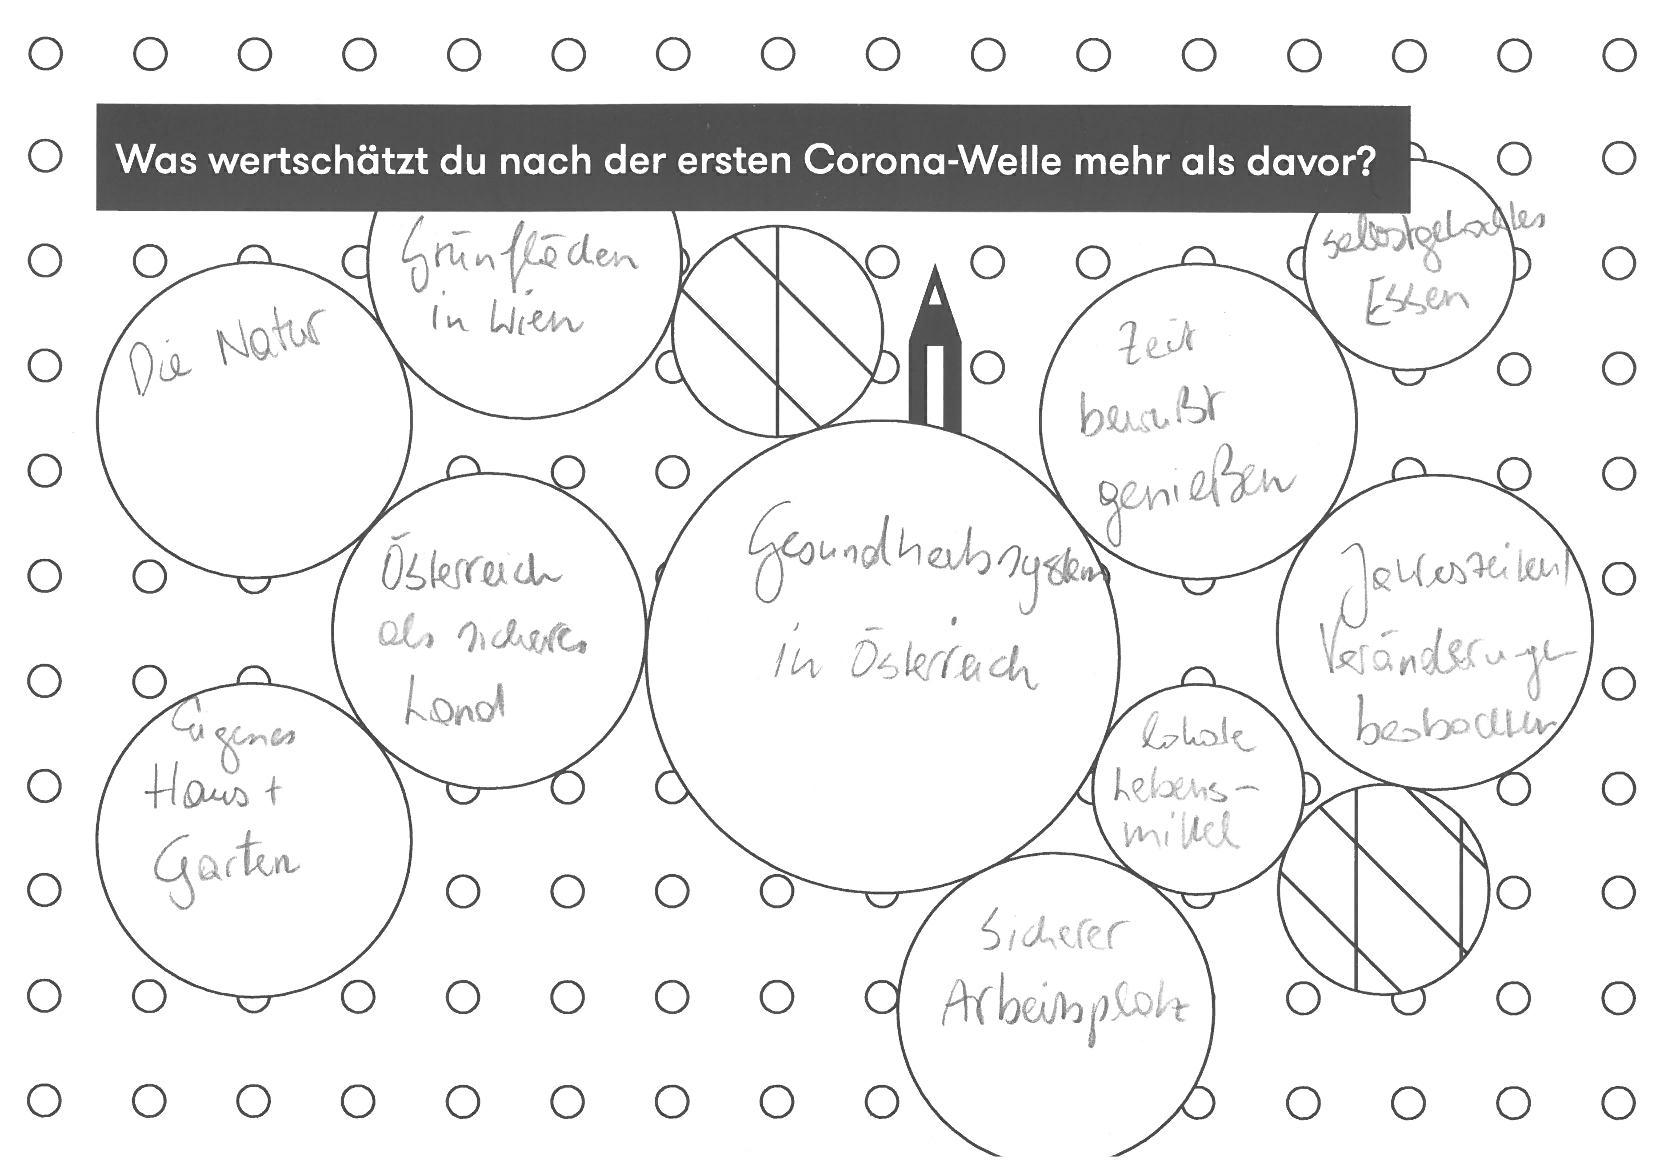 Was wertschätzt du nach der ersten Corona-Welle mehr als davor?
Grünflächen
in Wien
selbstgekochtes
Essen
Die Natur
Zeit
bewußt
genießen
Österreich
als sicheres
Land
Gesundheitssystem
in Österreich
Jahreszeiten/
Veränderungen
beobachten
Eigenes
Haus +
Garten
lokale
Lebens-
mittel
Sicherer
Arbeitsplatz